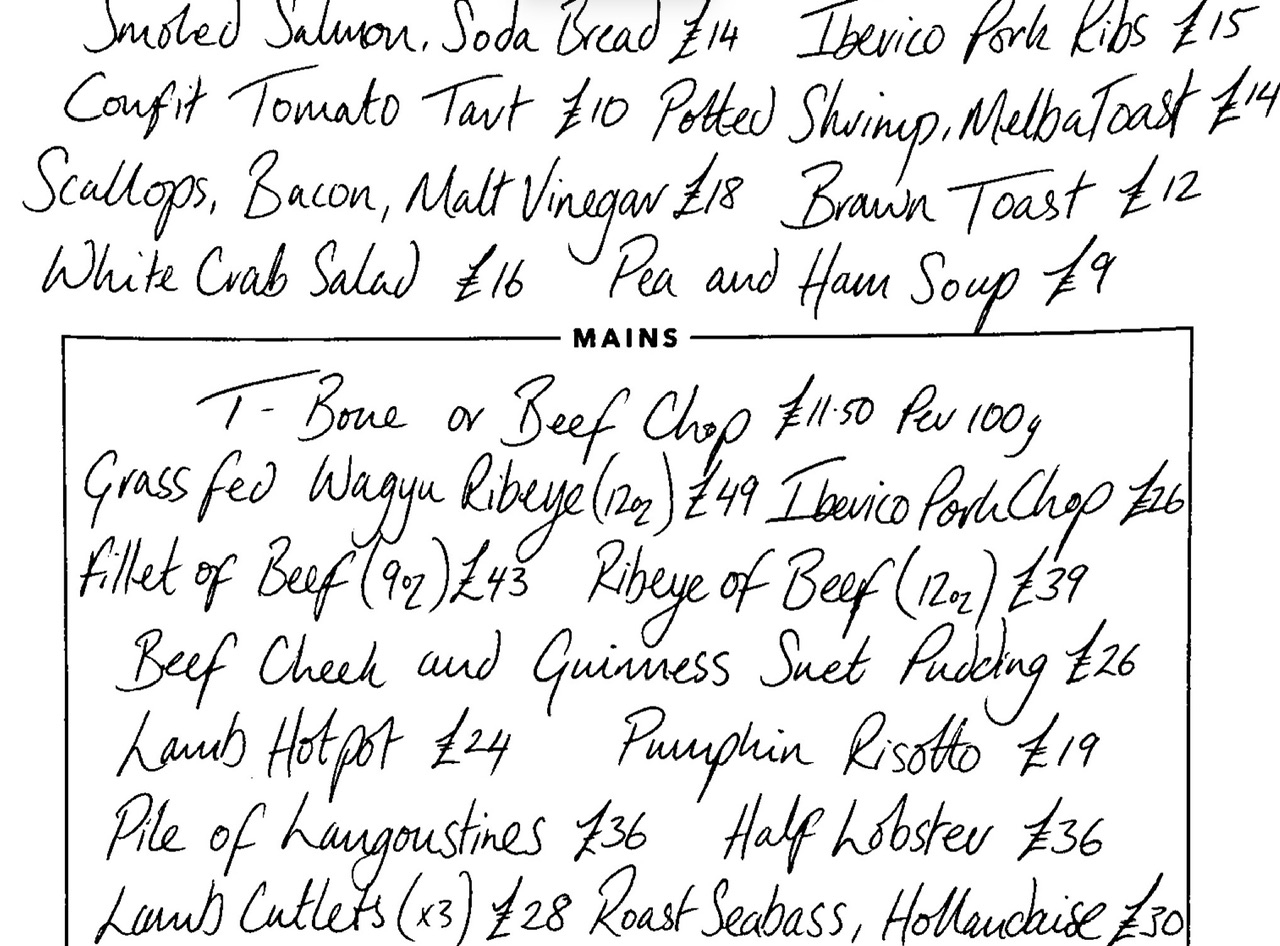 Smoked Salmon, Soda Bread £14 Iberico Pork Ribs £15
Confit Tomato Tart £10 Potted Shrimp, Melba Toast £14
Scallops, Bacon, Malt Vinegar £18 Brawn Toast £12
White Crab Salad £16 Pea and Ham Soup £9
MAINS
T-Bone or Beef Chop £11.50 Per 100g
Grass fed Wagyu Ribeye (12oz) £49 Iberico Pork Chop £26
Fillet of Beef (9oz) £43 Ribeye of Beef (12oz) £39
Beef Cheek and Guinness Suet Pudding £26
Lamb Hotpot £24 Pumphin Risotto £19
Pile of Langoustines £36 Half Lobster £36
Lamb Cutlets (x3) £28 Roast Seabass, Hollandaise £30